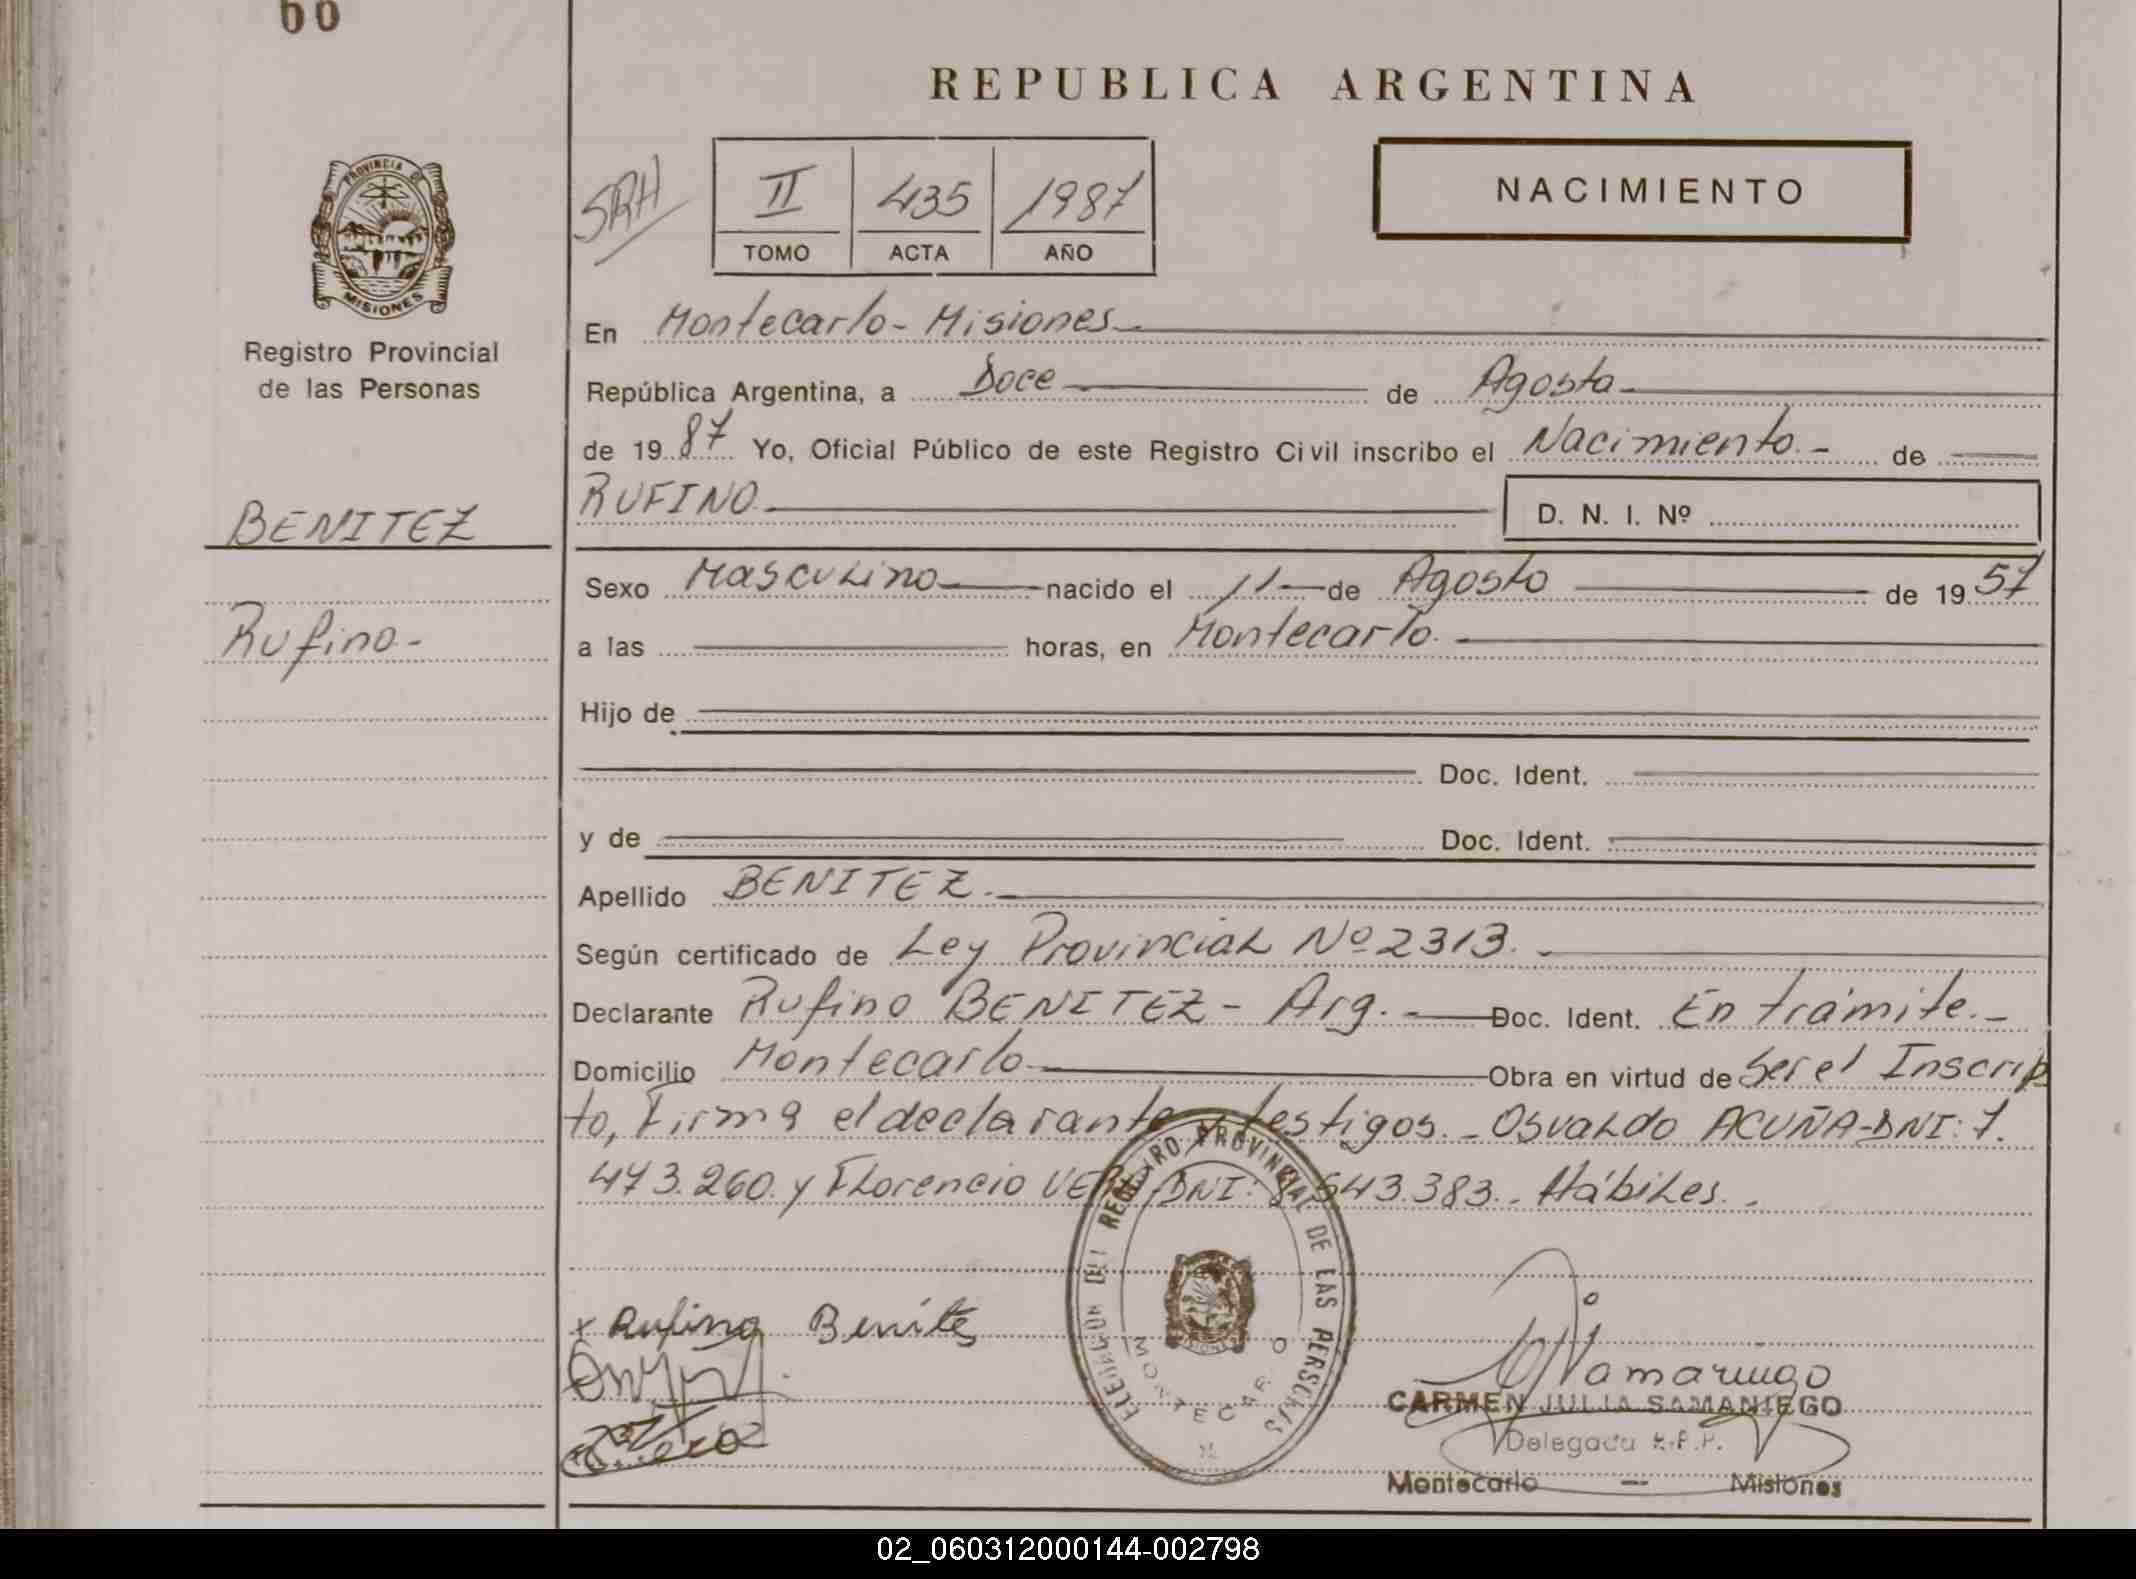 66
REPUBLICA ARGENTINA
PROVINCIA DE
MISIONES
Registro Provincial
de las Personas
BENITEZ
Rufino-
SRH
II 435 1987
TOMO ACTA AÑO
NACIMIENTO
En Montecarlo- Misiones
República Argentina, a Doce de Agosto
de 1987 Yo, Oficial Público de este Registro Civil inscribo el Nacimiento.- de
RUFINO D. N. I. Nº
Sexo Masculino nacido el 11 de Agosto de 1957
a las horas, en Montecarlo.
Hijo de
Doc. Ident.
y de Doc. Ident.
Apellido BENITEZ.
Según certificado de Ley Provincial Nº 2313.-
Declarante Rufino BENITEZ- Arg. Doc. Ident. En trámite.-
Domicilio Montecarlo Obra en virtud de Ser el Inscrip
to, Firma el declarante y testigos.- Osvaldo ACUÑA-DNI: 7.
473.260. y Florencio DNI: 643.383.- Hábiles.-
DEL REGISTRO PROVINCIAL DE LAS PERSONAS
MISIONES
MONTECARLO
x Rufino Benítez
CARMEN JULIA SAMANIEGO
Delegada R.P.P.
Montecarlo — Misiones
02_060312000144-002798